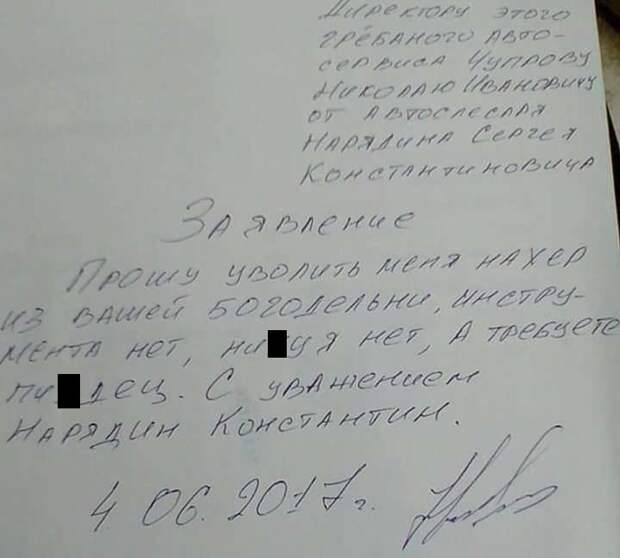 Директору этого
грёбаного авто-
сервиса Чупрову
Николаю Ивановичу
от автослесаря
Нарядина Сергея
Константиновича
Заявление
Прошу уволить меня нахер
из вашей богодельни, инстру-
мента нет, ни уя нет, а требуете
пи дец. С уважением
Нарядин Константин.
4.06.2017г.